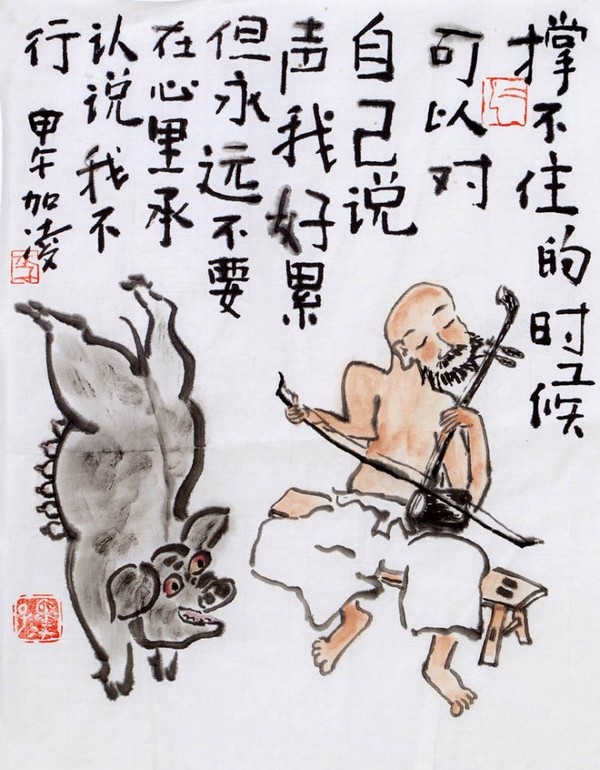 撑不住的时候
可以对
自己说
声我好累
但永远不要
在心里承
认说我不
行
甲午加凌